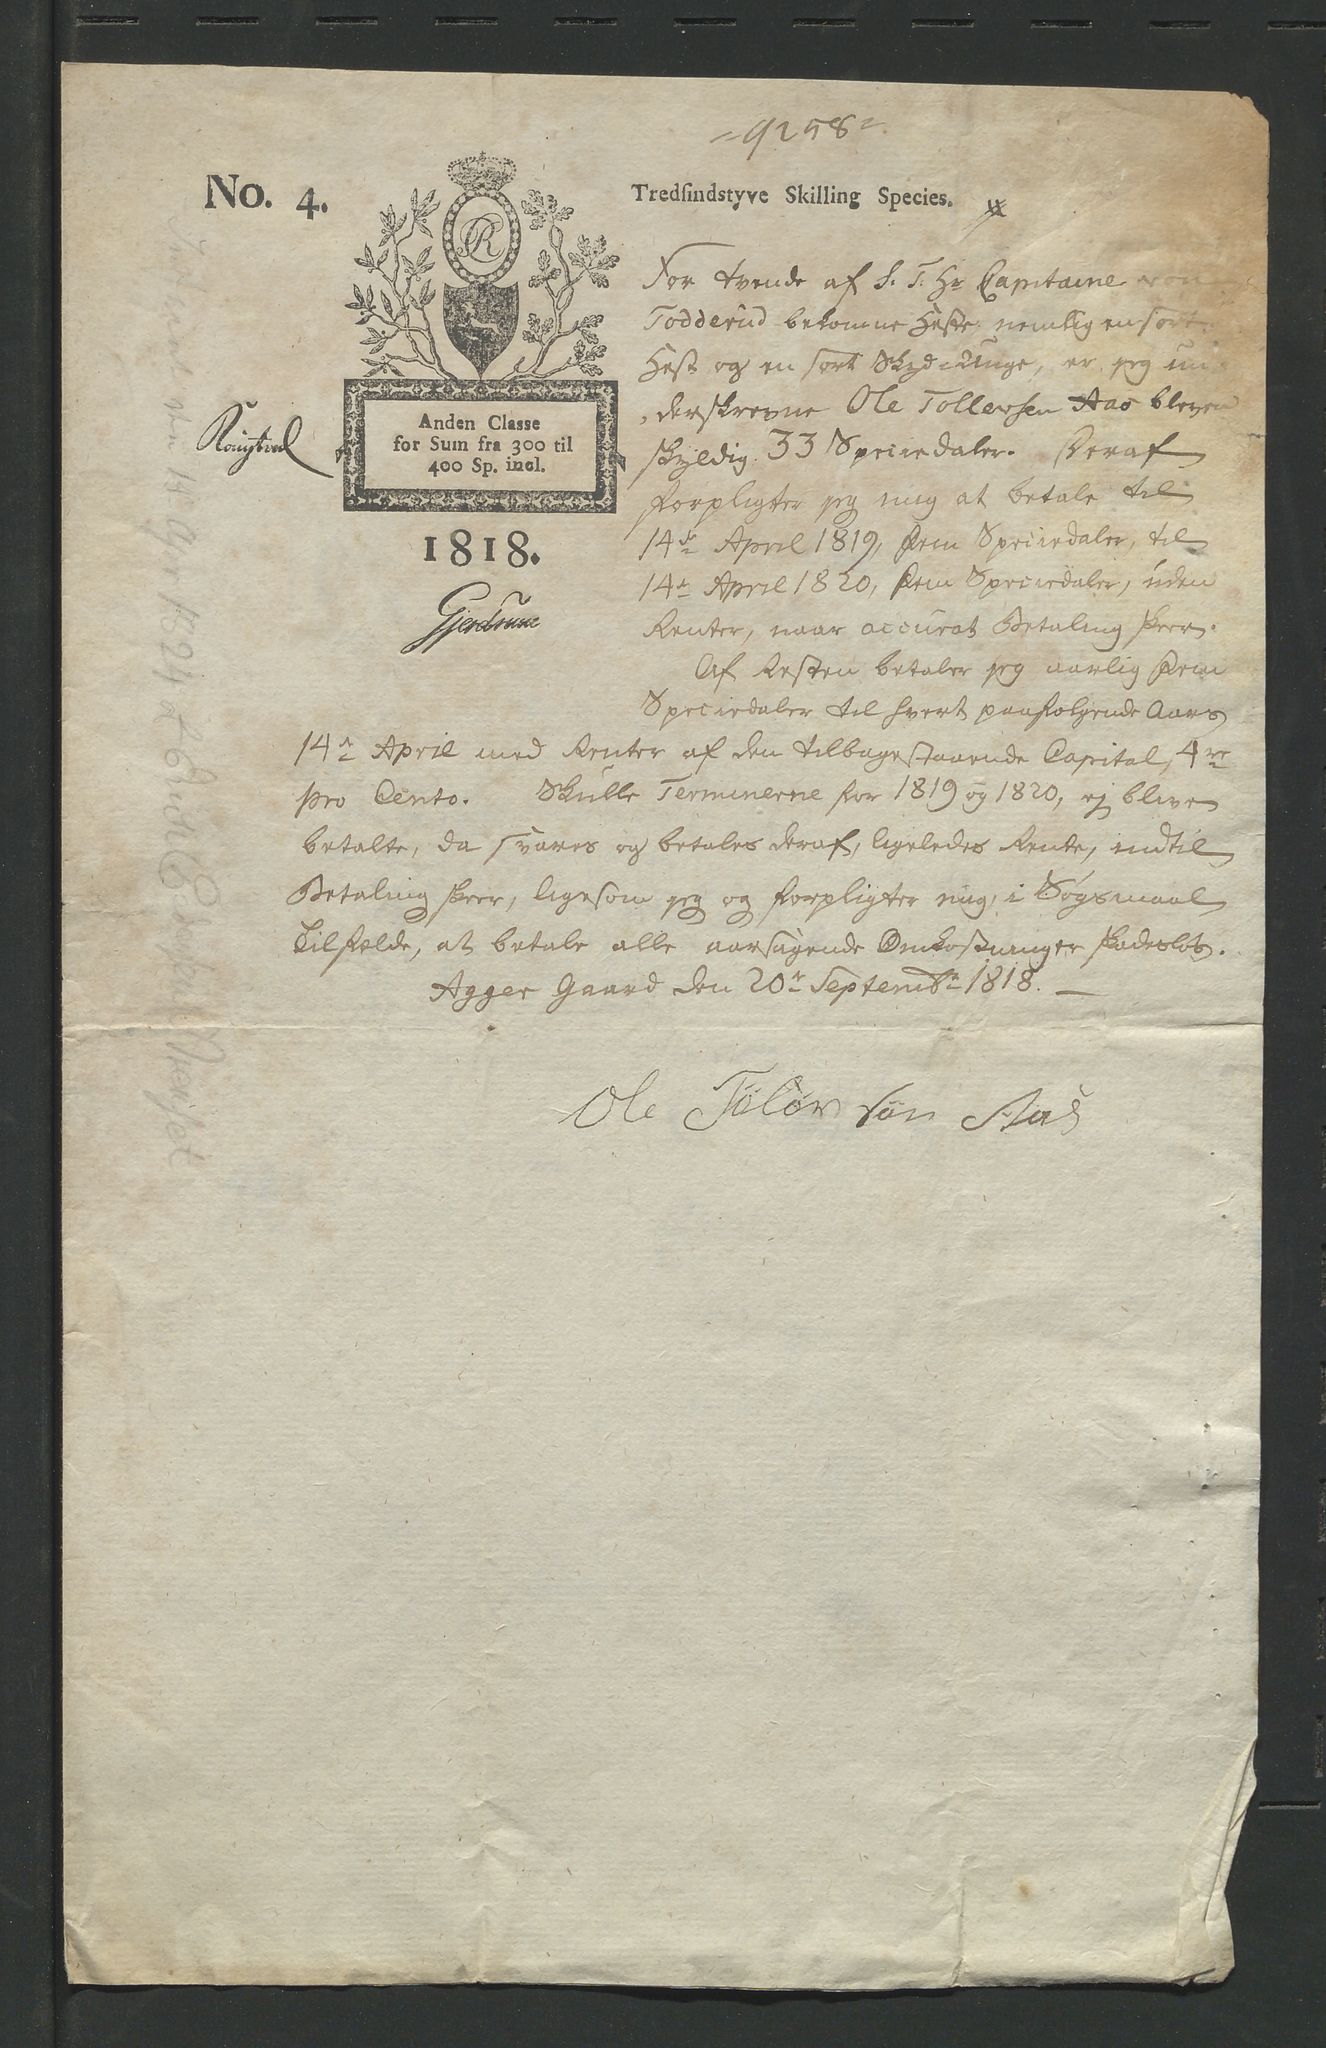 9258
No. 4.
Tredsindstyve Skilling Species.
Anden Classe
for Sum fra 300 til
400 Sp. incl.
1818.
Gjerdrum
For tvende af S. T. Hr Capitaine von
Todderud bekomne Heste, nemlig en sort
Hest og en sort, er jeg un-
derskrevne Ole Tollevsen Aas bleven
skyldig 33 Speciedaler. Deraf
forpligter jeg mig at betale til
14de April 1819, fem Speciedaler, til
14de April 1820, fem Speciedaler, uden
Renter, naar accurat Betaling skeer.
Af Resten betaler jeg aarlig fem
Speciedaler til hvert paafølgende Aars
14de April med Renter af den tilbagestaaende Capital, 4re
pro Cento. Skulle Terminerne for 1819 og 1820, ej blive
betalte, da svares og betales deraf, ligeledes Rente, indtil
Betaling skeer, ligesom jeg og forpligter mig, i Søgsmaals
Tilfælde, at betale alle aarsagende Omkostninger skadesløs.
Agger Gaard den 20de Septembr 1818.
Ole Tøløv søn Aas